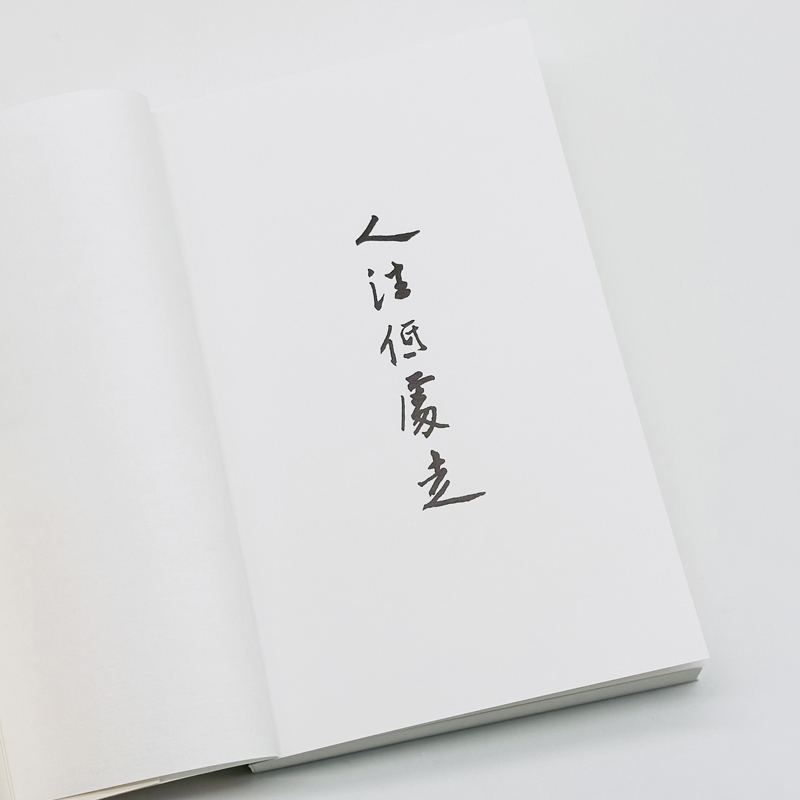 人往低處走